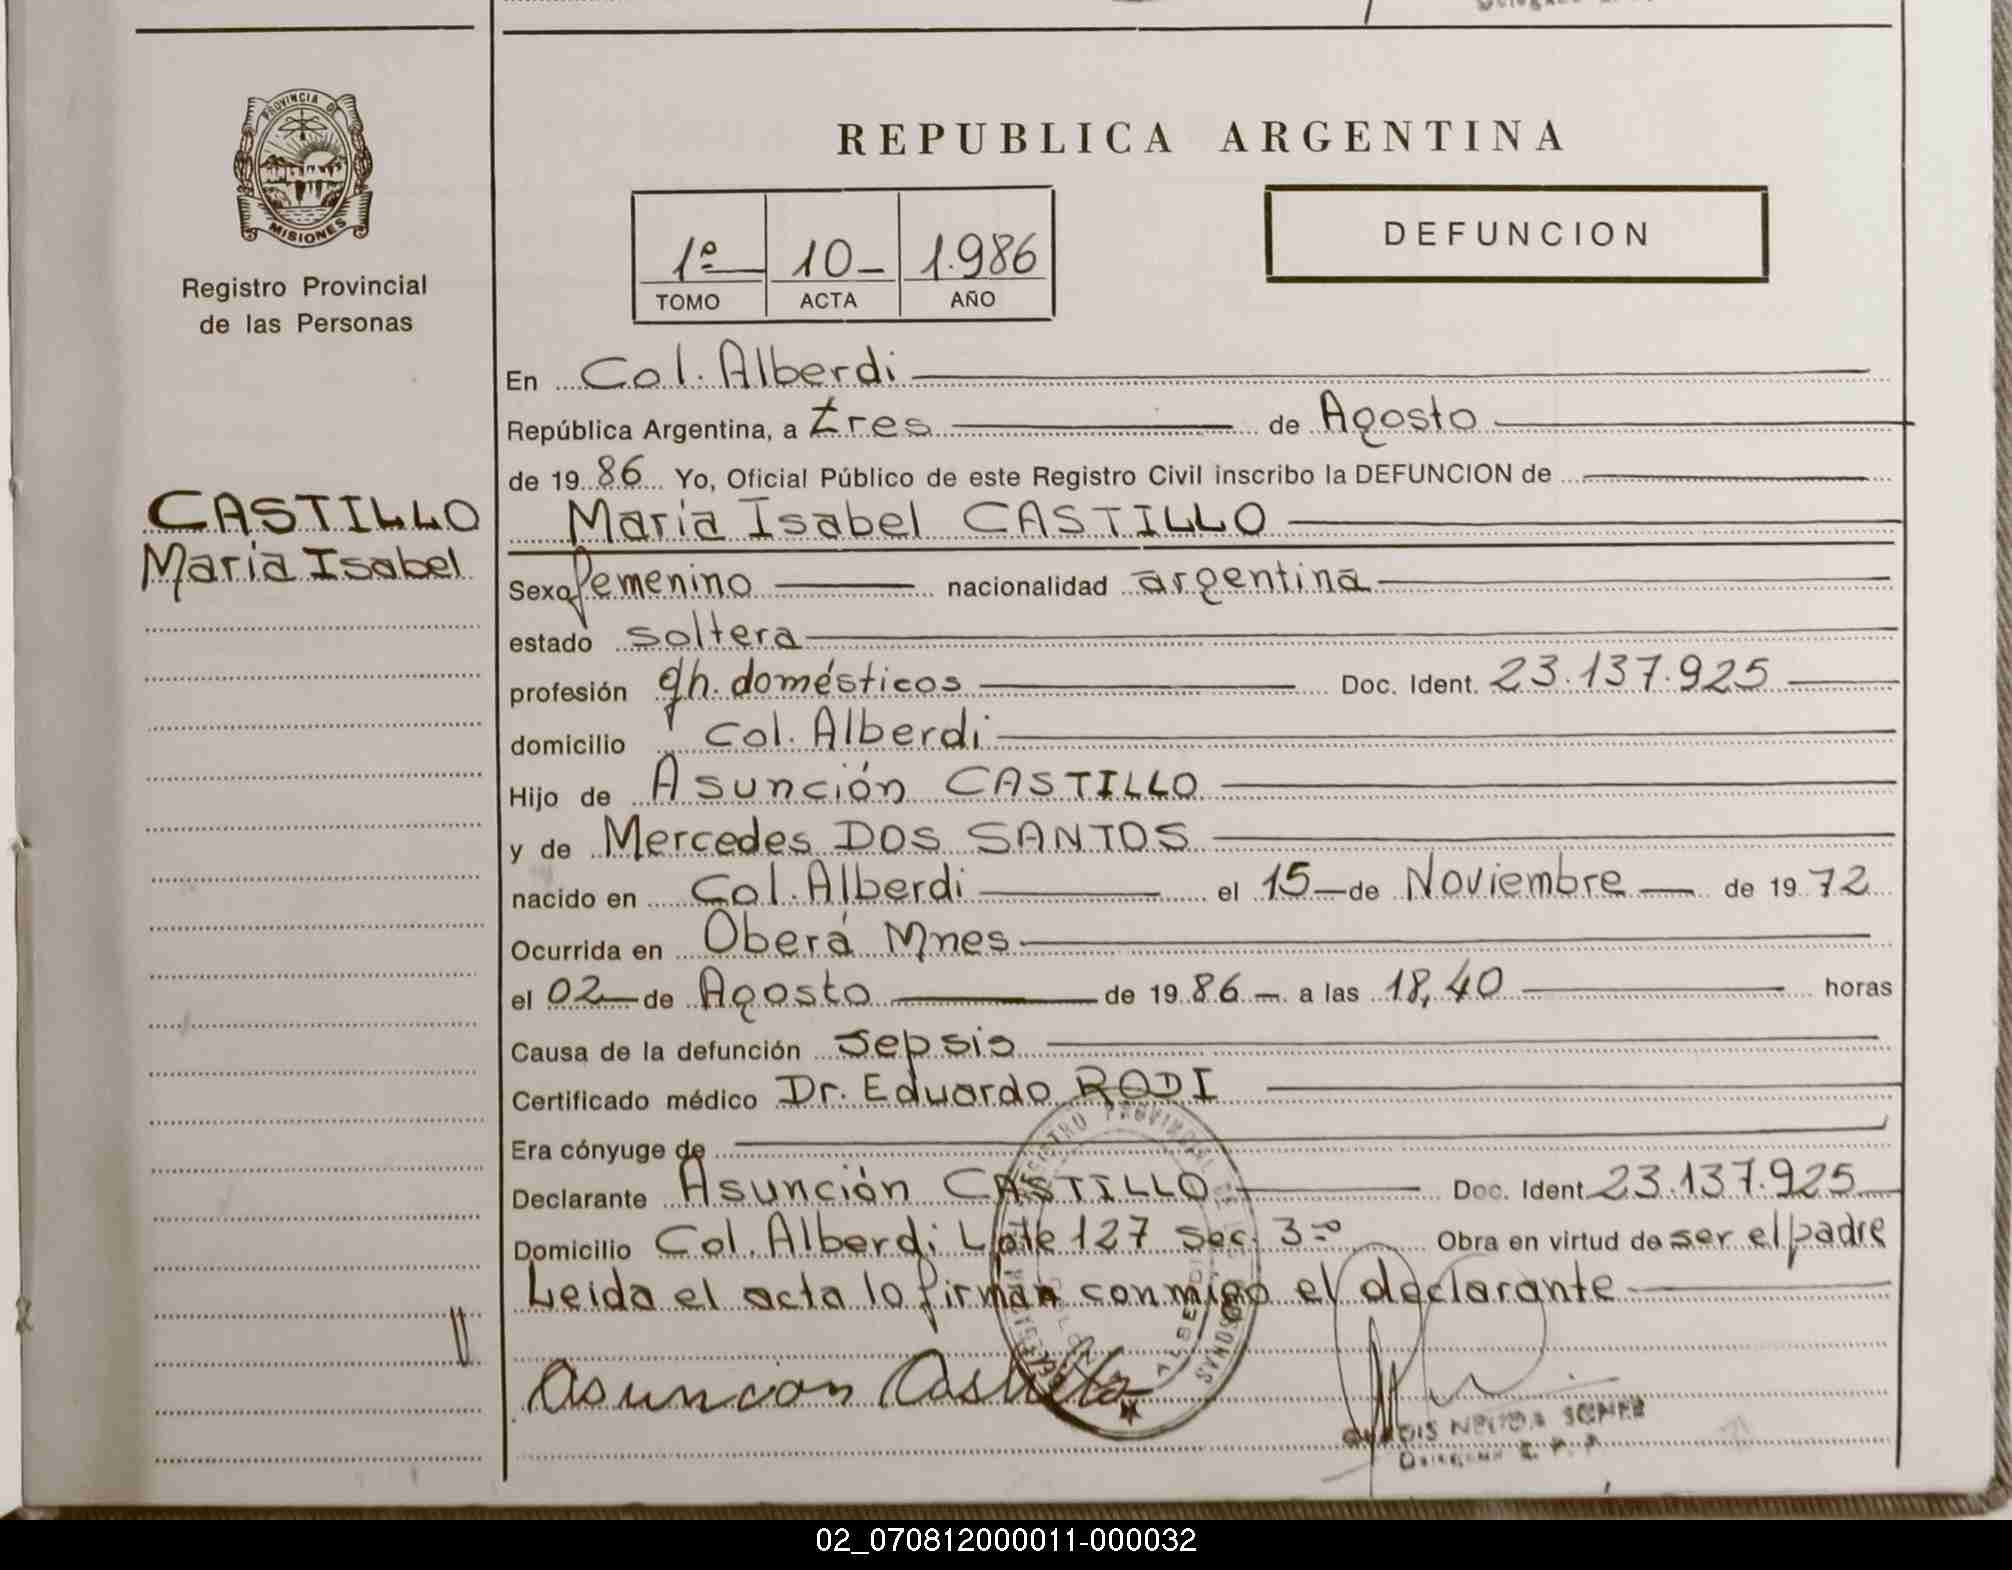 PROVINCIA DE
MISIONES
Registro Provincial
de las Personas
CASTILLO
Maria Isabel
REPUBLICA ARGENTINA
1º 10 1.986
TOMO ACTA AÑO
DEFUNCION
En Col. Alberdi
República Argentina, a tres de Agosto
de 19 86 Yo, Oficial Público de este Registro Civil inscribo la DEFUNCION de
Maria Isabel CASTILLO
Sexo femenino nacionalidad argentina
estado soltera
profesión qh. domésticos Doc. Ident. 23.137.925
domicilio Col. Alberdi
Hijo de Asunción CASTILLO
y de Mercedes DOS SANTOS
nacido en Col. Alberdi el 15 de Noviembre de 19 72
Ocurrida en Oberá Mnes
el 02 de Agosto de 19 86 a las 18,40 horas
Causa de la defunción sepsis
Certificado médico Dr. Eduardo RODI
Era cónyuge de
Declarante Asunción CASTILLO Doc. Ident 23.137.925
Domicilio Col. Alberdi Lote 127 sec. 3º Obra en virtud de ser el padre
Leida el acta lo firman conmigo el declarante
Asuncion Castillo
02_070812000011-000032